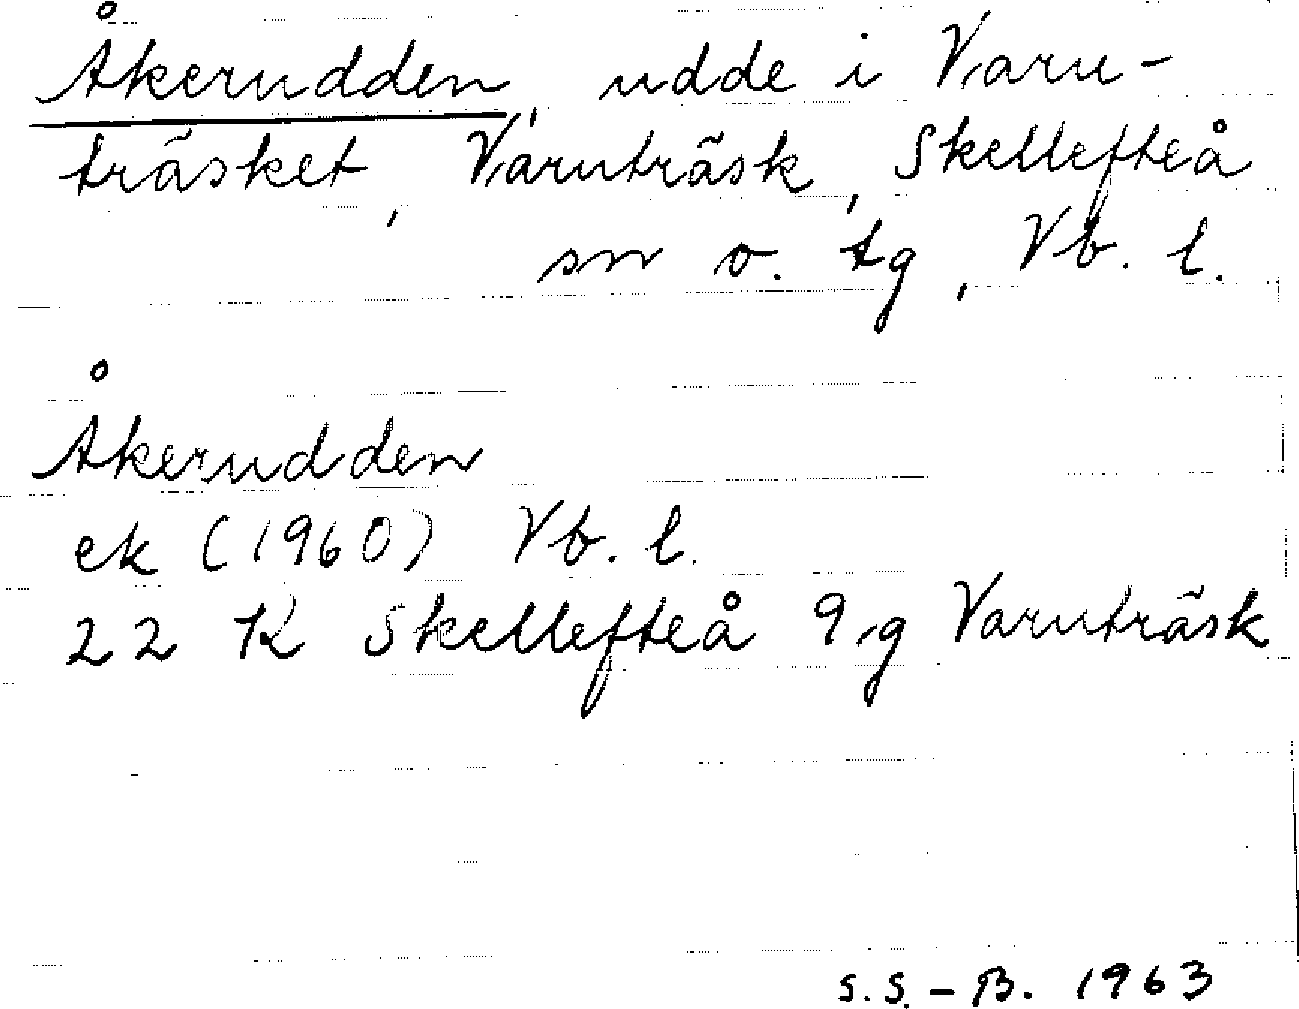 Åkerudden, udde i Varu-
träsket, Varuträsk, Skellefteå
sn o. tg, Vb. l.
Åkerudden
ek (1960) Vb. l.
22 K Skellefteå 9,g Varuträsk
S.S.-B. 1963